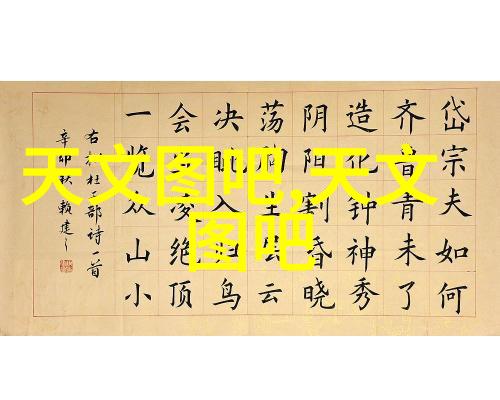 天文图吧,天文
图吧
岱宗夫如何
齐青未了
造化钟神秀
阴阳割昏晓
荡生层云
决入鸟
会凌绝顶
一览众山小
右杜部诗一首
辛卯秋赖建